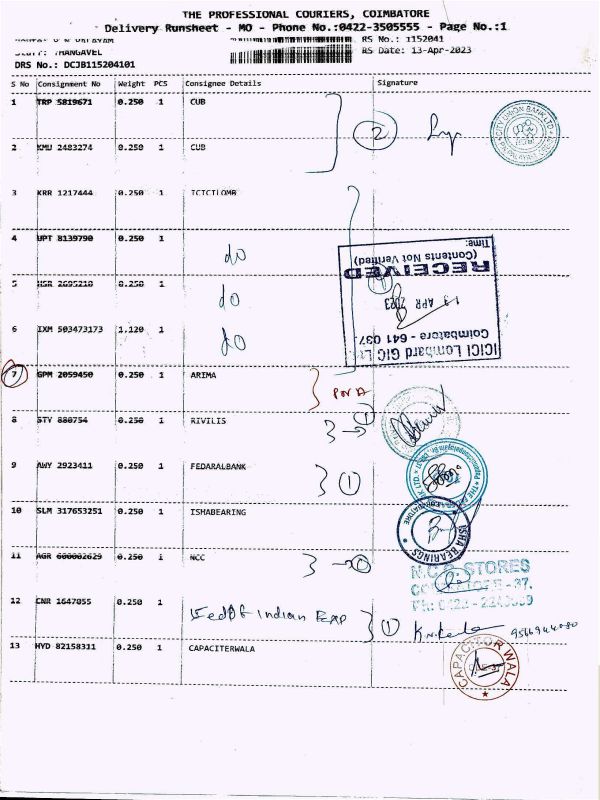 THE PROFESSIONAL COURIERS, COIMBATORE
Delivery Runsheet - MO - Phone No.:0422-3505555 - Page No.:1
RS No.: 1152041
THANGAVEL RS Date: 13-Apr-2023
DRS No.: DCJB115204101
S No Consignment No Weight PCS Consignee Details Signature
1 TRP 5819671 0.250 1 CUB
2
CITY UNION BANK LTD
2 KMU 2483274 0.250 1 CUB
3 KRR 1217444 0.250 1 ICICILOMB
4 UPT 8139790 0.250 1 do
5 0.250 1 do
6 IXM 503473173 1.120 1 do
ICICI Lombard GIC Lt
Coimbatore - 641 037.
13 APR 2023
RECEIVED
(Contents Not Verified)
Time:
7 GPM 2059450 0.250 1 ARIMA
8 STY 880754 0.250 1 RIVILIS
1
9 AWY 2923411 0.250 1 FEDARALBANK
1
10 SLM 317653251 0.250 1 ISHABEARING
ISHA BEARINGS
COIMBATORE
11 AGR 600002629 0.250 1 NCC
N.C.S. STORES
12 CNR 1647055 0.250 1 Fed Of Indian Exp
1
13 HYD 82158311 0.250 1 CAPACITERWALA
CAPACITOR WALA